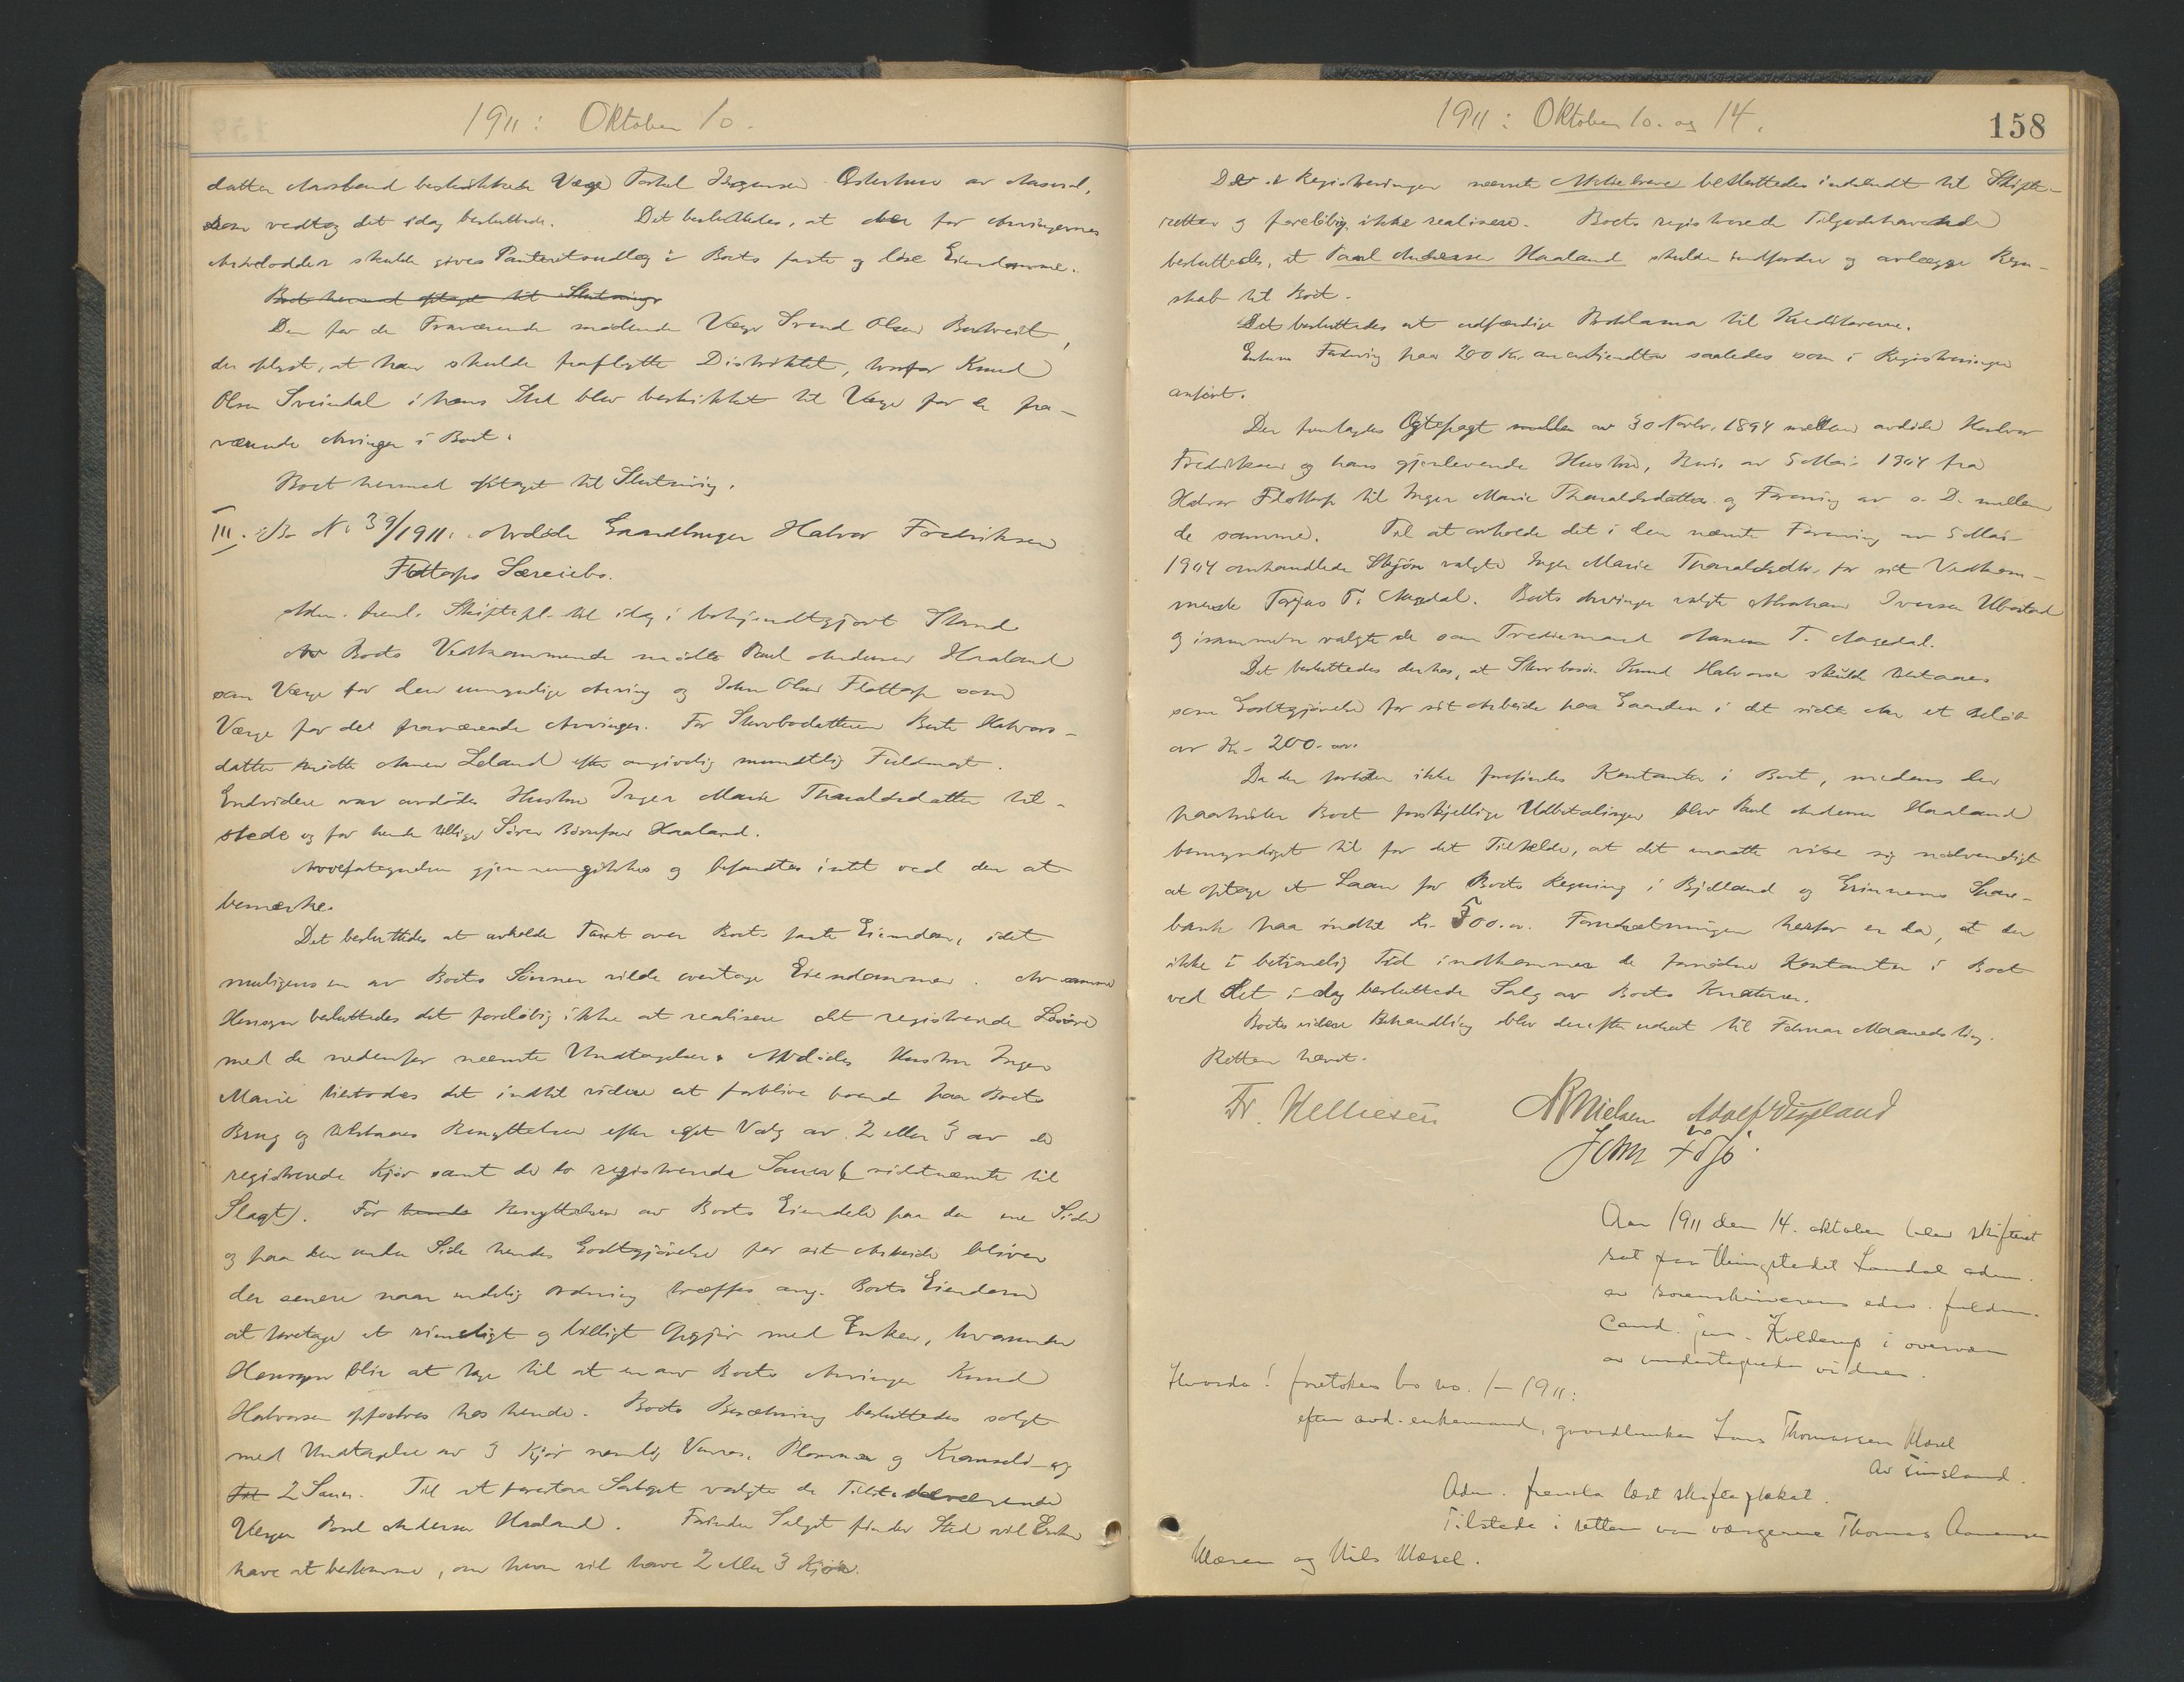 1911: Oktober 10.
datter Aarsland beskikkede Værge Torkel Jörgensen Osterhus av Aaseral,
som vedtog det idag besluttede. Det besluttedes, at der for Arvingernes
Arvelodder skulde gives Panteretsudlæg i Boets faste og löse Eiendomme.
Boet hermed optaget til Slutning
Den for de Fraværende mödende Værge Svend Olsen
der oplyste, at han skulde fraflytte Distriktet, hvorfor Knud
Olsen Sveindal i hans Sted blev beskikket til Værge for de fra-
værende Arvinger i Boet.
Boet hermed optaget til Slutning.
III. Bo No 39/1911. Avdöde Gaardbruger Halvor Fredriksen
Flottorps Særeiebo.
Adm. freml. Skiftepl. til idag i bekjendtgjort Stand
Av Boets Vedkommende mödte Paul Andersen Haaland
som Værge for den umyndige Arving og John Olsen Flottorp som
Værge for det fraværende Arvinger. For Stervbodatteren Berte Halvors-
datter mödte Aanen Leland efter angivelig mundtlig Fuldmagt.
Endvidere var avdödes Hustru Inger Marie Tharaldsdatter til-
stede og for hende tillige Sören Haaland.
Arvefategnelsen gjennemgikkes og befandtes intet ved den at
bemærke.
Det besluttedes at avholde Taxt over Boets faste Eiendom, idet
muligens en av Boets Sönner vilde overtage Eiendommen. Av samme
Hensyn besluttedes det foreløbig ikke at realisere det registrerede Lösöre
med de nedenfor nævnte Undtagelser. Avdödes Hustru Inger
Marie tilstodes det indtil videre at forblive boende paa Boets
Brug og tilstaaes Benyttelsen efter eget Valg av 2 eller 3 av de
registrerede Kjör samt de to registrerede Sauer (sidstnævnte til
Slagt). For hende Benyttelsen av Boets Eiendele paa den ene Side
og paa den anden Side hendes Godtgjörelse for sit Arbeide bliver
der senere naar endelig Ordning træffes ang. Boets Eiendom
at foretage et rimeligt og billigt Opgjör med Enken, hvorunder
Hensyn blir at tage til at en av Boets Arvinger Knud
Halvorsen opfostres hos hende. Boets Besætning besluttedes solgt
med Undtagelse av 3 Kjör nemlig Plomma og Kranseld og
Til 2 Sauer. Til at forestaa Salget valgte de Tilstedeværende
Værgen Paul Andersen Haaland. Forinden Salget finder Sted vil Enken
have at bestemme, om hun vil have 2 eller 3 Kjör.
1911: Oktober 10. og 14.
158
De i Registreringen nævnte Aktiebreve besluttedes indsendt til Skifte-
retten og foreløbig ikke realisere. Boets registrerede Tilgodehavende
besluttedes, at Paul Andersen Haaland skulde indfordre og avlægge Regn-
skab til Boet.
Det besluttedes at udfærdige Proklama til Kreditorerne.
Enkens Fordring paa 200 Kr. anerkjendtes saaledes som i Registreringen
anfört.
Der fremlagdes Ægtepagt mellem av 30 Novbr. 1894 mellem avdöde Halvor
Fredriksen og hans gjenlevende Hustru, Brev av 5 Mai 1904 fra
Halvor Flottorp til Inger Marie Tharaldsdatter og Forening av s. D. mellem
de samme. Til at avholde det i den nævnte Forening av 5 Mai
1904 omhandlede Skjön valgte Inger Marie Tharaldsdtr. for sit Vedkom-
mende Torjus T. Aagedal. Boets Arvinger valgte Abraham Iversen Ubostad
og isammen valgte de som Trediemand Aanen T. Aagedal.
Det besluttedes derhos, at Stervbosön Knud Halvorsen skulde tilstaaes
som Godtgjörelse for sit Arbeide paa Gaarden i det sidste Aar et Belöb
av Kr. 200.00.
Da der forhen ikke forefindes Kontanter i Boet, medens der
paahviler Boet forskjellige Udbetalinger blev Paul Andersen Haaland
bemyndiget til for det Tilfælde, at det maatte vise sig nödvendigt
at optage et Laan for Boets Regning i Bjelland og Grinnems Spare-
bank paa indtil Kr. 500.00. Forudsætningen herfor er da, at der
ikke i betimelig Tid indkommer de fornödne Kontanter i Boet
ved det i dag besluttede Salg av Boets Kreaturer.
Boets videre Behandling blev derefter udsat til Februar Maanedsting.
Retten hævet.
Fr. Helliesen NNielsen Adolf Vigeland
John
Aar 1911 den 14. oktober blev skifteret
sat paa thingstedet Landal adm.
av sorenskriverens edsv. fuldm.
cand. jur. Kolderup i overvær
av undertegnede vidner.
Hvorda! foretokes bo no. 1-1911:
efter avd. enkemand, gaardbruker Lars Thomassen Mosel
av Finsland.
Adm. fremla læst skifteplakat.
Tilstede i retten var værgerne Thomas Aanensen
og Nils Mosel.